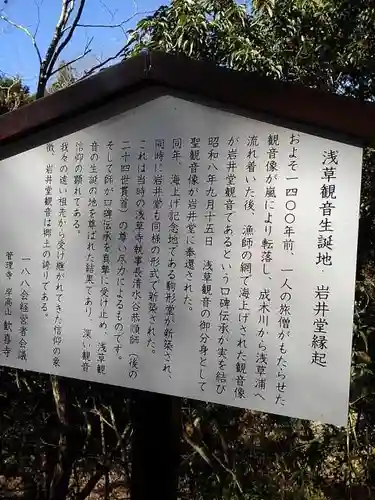 浅草観音生誕地　岩井堂縁起
およそ一四〇〇年前、一人の旅僧がもたらせた
観音像が嵐により転落し、成木川から浅草浦へ
流れ着いた後、漁師の網で海上げされた観音像
が岩井堂観音であるという口碑伝承が実を結び
昭和八年九月十五日、浅草観音の御分身として
聖観音像が岩井堂に奉還された。
同年、海上げ記念地である駒形堂が新築され、
同時に岩井堂も同様の形式で新築された。
これは当時の浅草寺執事長清水谷恭順師（後の
二十四世貫首）の尊い尽力によるものです。
そして師が口碑伝承を真摯に受け止め、浅草観
音の生誕の地を尊ばれた結果であり、深い観音
信仰の顕れである。
我々の遠い祖先から受け継がれてきた信仰の象
徴、岩井堂観音は郷土の誇りである。
一八八会経営者会議
管理寺　岸高山　歓喜寺